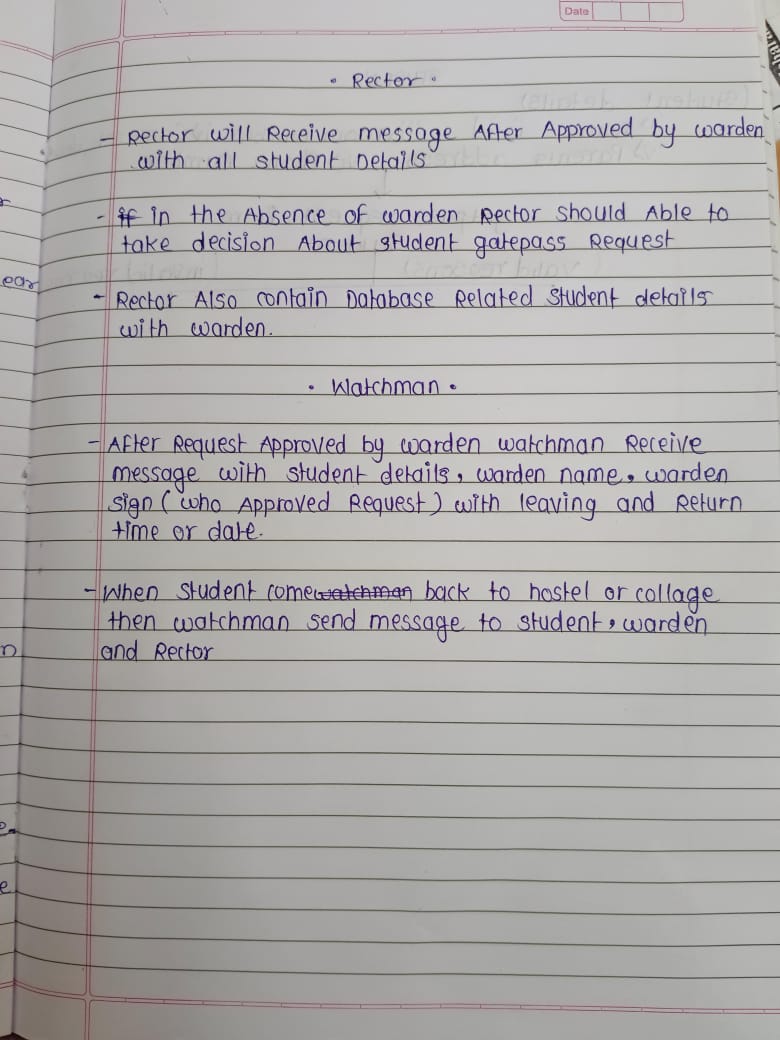 Date
• Rector •
- Rector will Receive message After Approved by warden
with all student Details
- in the Absence of warden Rector should Able to
take decision About student gatepass Request
ear
- Rector Also contain Database Related student details
with warden.
• Watchman •
- After Request Approved by warden watchman Receive
message with student details, warden name, warden
sign ( who Approved Request ) with leaving and Return
time or date.
- When student come watchman back to hostel or collage
then watchman send message to student, warden
n
and Rector
e